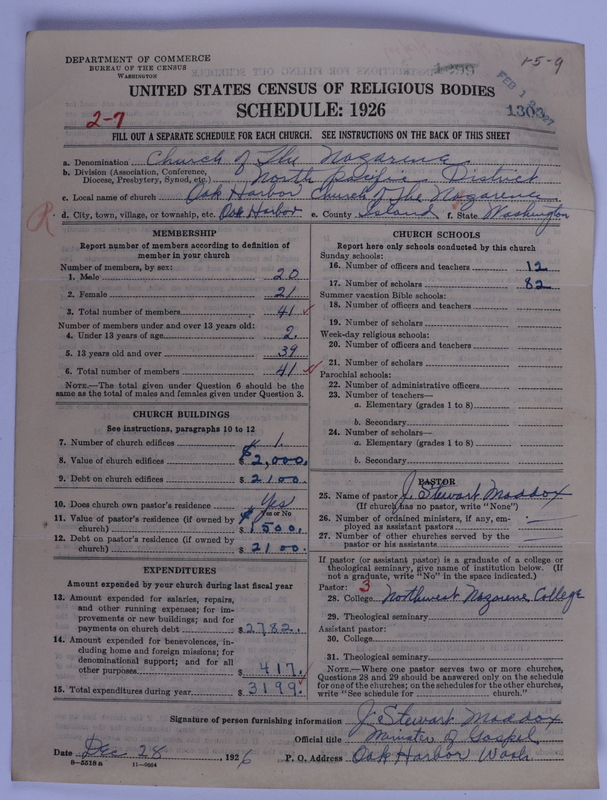 DEPARTMENT OF COMMERCE
BUREAU OF THE CENSUS
WASHINGTON
1-5-9
FEB 1
1303
UNITED STATES CENSUS OF RELIGIOUS BODIES
SCHEDULE: 1926
2-7
FILL OUT A SEPARATE SCHEDULE FOR EACH CHURCH. SEE INSTRUCTIONS ON THE BACK OF THIS SHEET
a. Denomination Church of The Nazarene
b. Division (Association, Conference, Diocese, Presbytery, Synod, etc.) North Pacific District
c. Local name of church Oak Harbor Church of The Nazarene
R d. City, town, village, or township, etc. Oak Harbor e. County Island f. State Washington
MEMBERSHIP
Report number of members according to definition of
member in your church
Number of members, by sex:
1. Male 20
2. Female 21
3. Total number of members 41
Number of members under and over 13 years old:
4. Under 13 years of age 2
5. 13 years old and over 39
6. Total number of members 41
NOTE.—The total given under Question 6 should be
the same as the total of males and females given under Question 3.
CHURCH BUILDINGS
See instructions, paragraphs 10 to 12
7. Number of church edifices 1.
8. Value of church edifices $2,000.
9. Debt on church edifices $2100.
10. Does church own pastor's residence Yes
Yes or No
11. Value of pastor's residence (if owned by
church) $1500.
12. Debt on pastor's residence (if owned by
church) $2100.
EXPENDITURES
Amount expended by your church during last fiscal year
13. Amount expended for salaries, repairs,
and other running expenses; for im-
provements or new buildings; and for
payments on church debt $2782.
14. Amount expended for benevolences, in-
cluding home and foreign missions; for
denominational support; and for all
other purposes $417.
15. Total expenditures during year $3199.
CHURCH SCHOOLS
Report here only schools conducted by this church
Sunday schools:
16. Number of officers and teachers 12
17. Number of scholars 82
Summer vacation Bible schools:
18. Number of officers and teachers
19. Number of scholars
Week-day religious schools:
20. Number of officers and teachers
21. Number of scholars
Parochial schools:
22. Number of administrative officers
23. Number of teachers—
a. Elementary (grades 1 to 8)
b. Secondary
24. Number of scholars—
a. Elementary (grades 1 to 8)
b. Secondary
PASTOR
25. Name of pastor J. Stewart Maddox
(If church has no pastor, write "None")
26. Number of ordained ministers, if any, em-
ployed as assistant pastors
27. Number of other churches served by the
pastor or his assistants
If pastor (or assistant pastor) is a graduate of a college or
theological seminary, give name of institution below. (If
not a graduate, write "No" in the space indicated.)
Pastor: 3
28. College Northwest Nazarene College
29. Theological seminary
Assistant pastor:
30. College
31. Theological seminary
NOTE.—Where one pastor serves two or more churches,
Questions 28 and 29 should be answered only on the schedule
for one of the churches; on the schedules for the other churches,
write "See schedule for church."
Signature of person furnishing information J. Stewart Maddox
Official title Minister of Gospel
Date Dec 28, 1926 P. O. Address Oak Harbor Wash.
8—5518a 11—9664